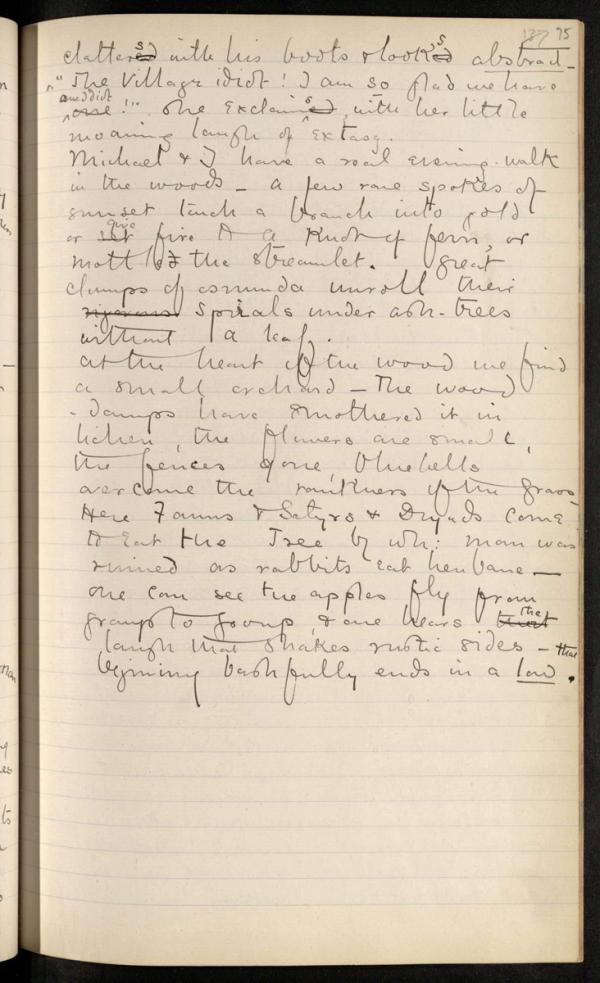 137 95
clatters with his boots & looks abstract –
"The Village idiot! I am so glad we have
one!" she exclaims, with her little
moaning laugh of extasy.
Michael & I have a real evening-walk
in the woods – a few rare spokes of
sunset touch a branch into gold
or give fire to a knot of fern, or
the streamlet. Great
clumps of osmunda unroll their
rigorous spirals under ash-trees
without a leaf.
At the heart of the wood we find
a small orchard – The wood
-damps have smothered it in
lichen, the flowers are small,
the fences gone, bluebells
overcome the rankness of the grass
Here Fauns & Satyrs & Dryads come
to eat the Tree by wh: man was
ruined as rabbits eat henbane –
one can see the apples fly from
group to group, & one hears the
laugh that shakes rustic sides – that
beginning bashfully ends in a low.